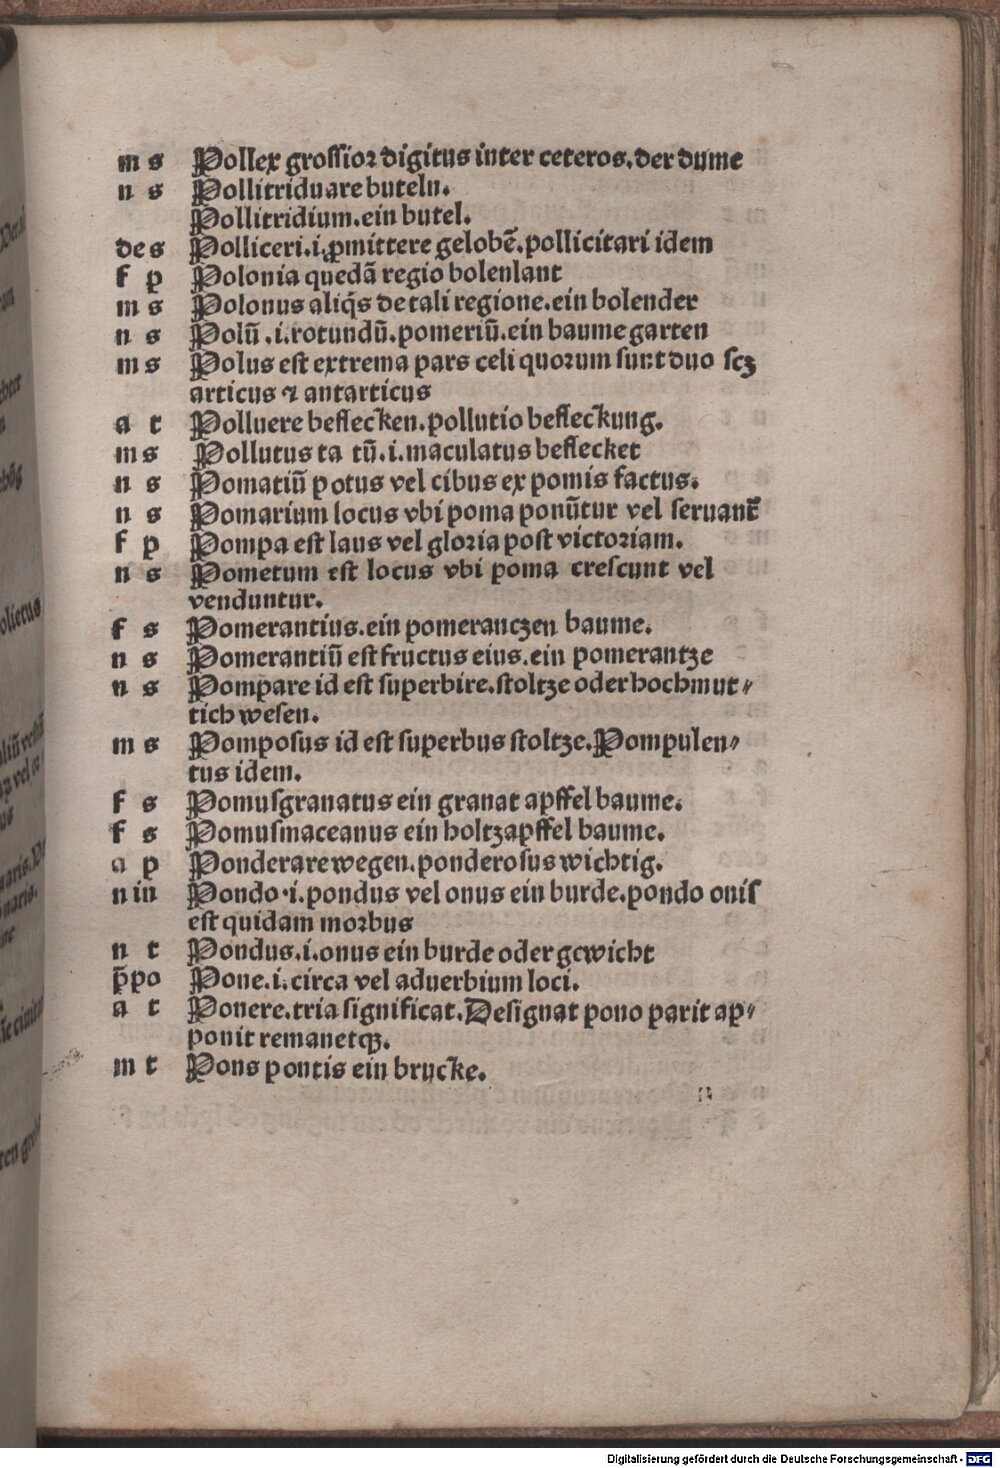 m s Pollex grossior digitus inter ceteros.der dume
n s Pollitriduare buteln.
Pollitridium.ein butel.
de s Polliceri.i.ꝓmittere gelobē.pollicitari idem
f p Polonia quedã regio bolenlant
m s Polonus aliq̃s de tali regione.ein bolender
n s Polũ.i.rotundũ.pomeriũ.ein baume garten
m s Polus est extrema pars celi quorum sunt duo scʒ
articus ⁊ antarticus
a t Polluere beflecken.pollutio befleckung.
m s Pollutus ta tũ.i.maculatus beflecket
n s Pomatiũ potus vel cibus ex pomis factus.
n s Pomarium locus vbi poma ponũtur vel seruant᷑
f p Pompa est laus vel gloria post victoriam.
n s Pometum est locus vbi poma crescunt vel
venduntur.
f s Pomerantius.ein pomeranczen baume.
n s Pomerantiũ est fructus eius.ein pomerantze
n s Pompare id est superbire.stoltze oder hochmut⸗
tich wesen.
m s Pomposus id est superbus stoltze.Pompulen⸗
tus idem.
f s Pomusgranatus ein granat apffel baume.
f s Pomusmaceanus ein holtzapffel baume.
a p Ponderare wegen.ponderosus wichtig.
n in Pondo.i.pondus vel onus ein burde.pondo onis
est quidam morbus
n t Pondus.i.onus ein burde oder gewicht
p̃po Pone.i.circa vel aduerbium loci.
a t Ponere.tria significat.Designat pono parit ap⸗
ponit remanetqꝫ.
m t Pons pontis ein brucke.
Digitalisierung gefördert durch die Deutsche Forschungsgemeinschaft - DFG